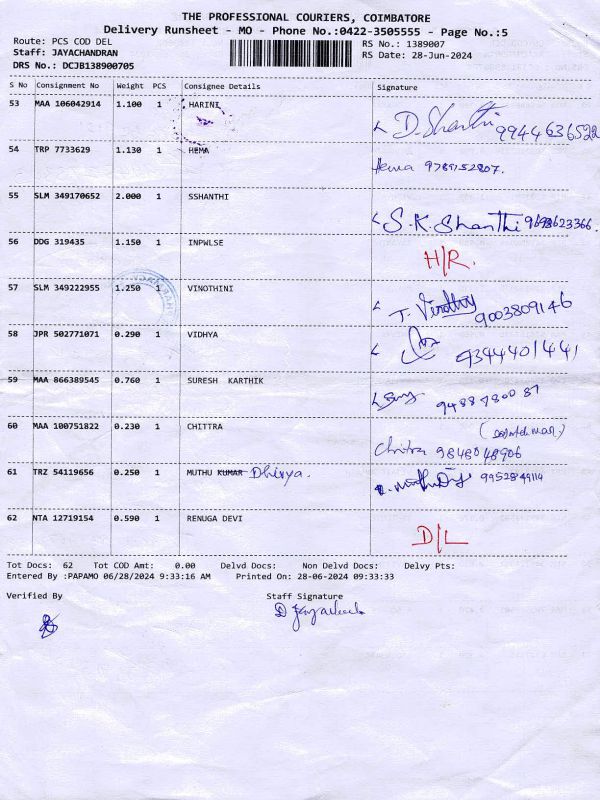 THE PROFESSIONAL COURIERS, COIMBATORE
Delivery Runsheet - MO - Phone No.:0422-3505555 - Page No.:5
Route: PCS COD DEL RS No.: 1389007
Staff: JAYACHANDRAN RS Date: 28-Jun-2024
DRS No.: DCJB138900705
S No Consignment No Weight PCS Consignee Details Signature
53 MAA 106042914 1.100 1 HARINI D. Shanthi 9944636522
54 TRP 7733629 1.130 1 HEMA Hema 9789152807.
55 SLM 349170652 2.000 1 SSHANTHI S.K. Shanthi
56 DDG 319435 1.150 1 INPWLSE H/R.
57 SLM 349222955 1.250 1 VINOTHINI 9003809146
58 JPR 502771071 0.290 1 VIDHYA 9344401441
59 MAA 866389545 0.760 1 SURESH KARTHIK
60 MAA 100751822 0.230 1 CHITTRA Chitra 9848048906
61 TRZ 54119656 0.250 1 MUTHU KUMAR Dhivya. 9952849114
62 NTA 12719154 0.590 1 RENUGA DEVI D/L
Tot Docs: 62 Tot COD Amt: 0.00 Delvd Docs: Non Delvd Docs: Delvy Pts:
Entered By :PAPAMO 06/28/2024 9:33:16 AM Printed On: 28-06-2024 09:33:33
Verified By Staff Signature